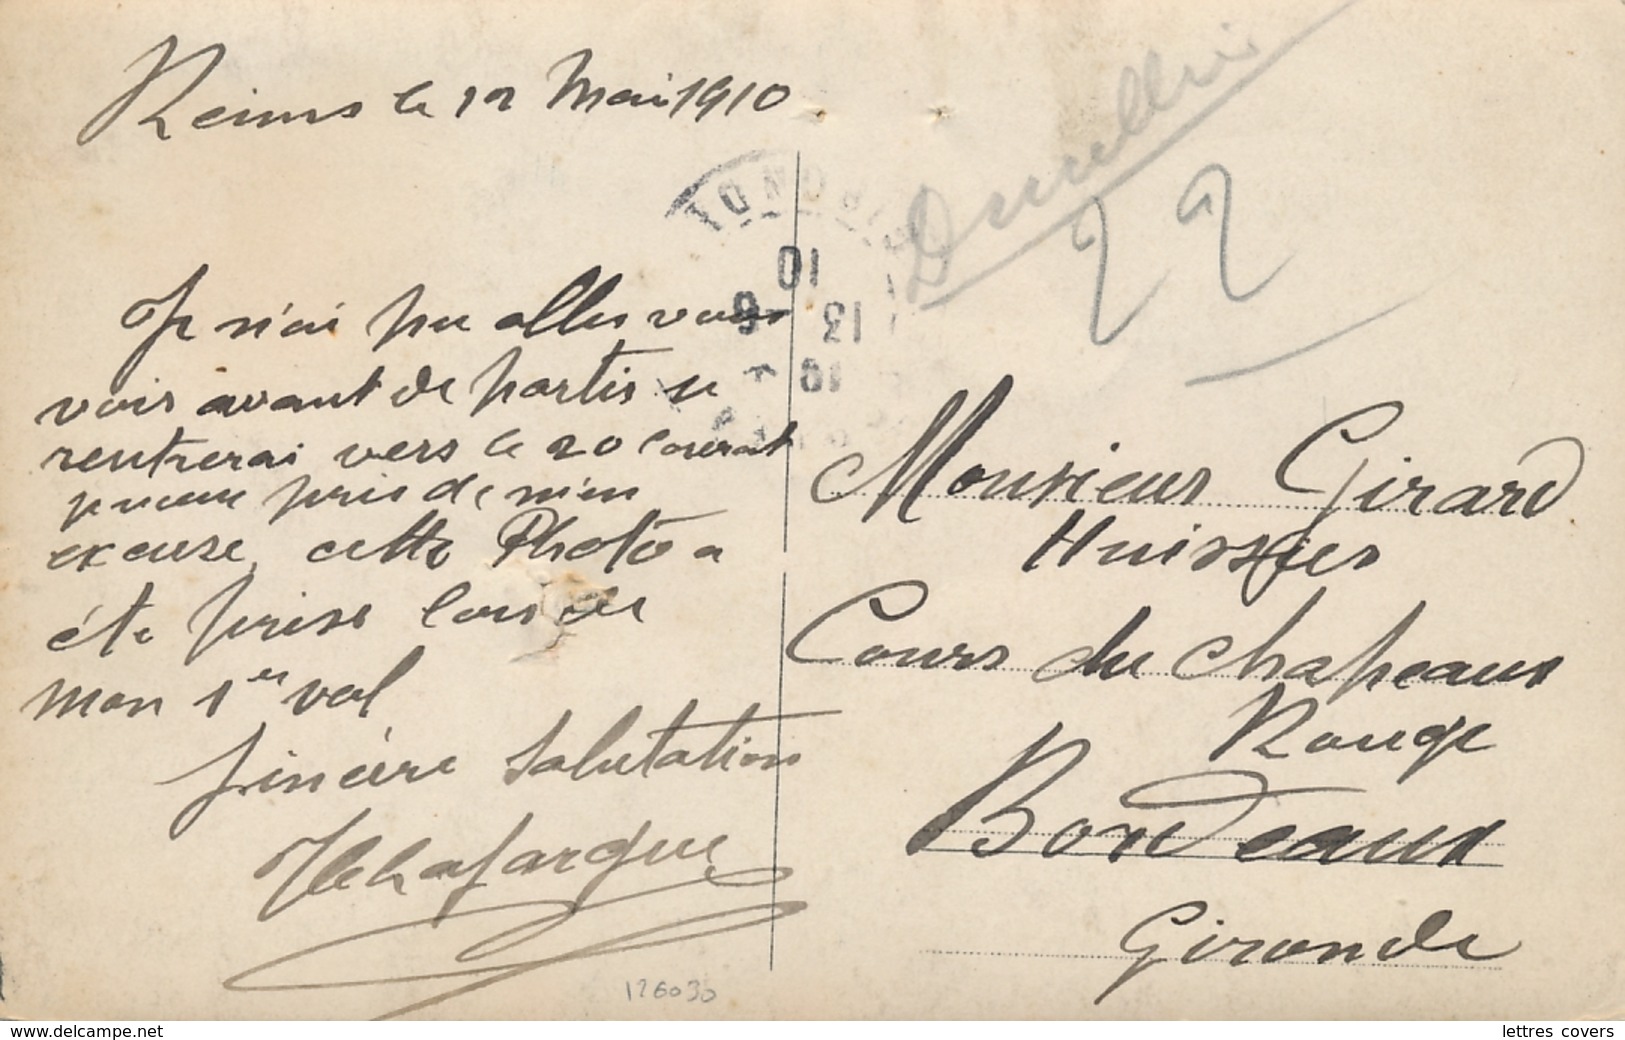 Reims le 12 Mai 1910
Je n'ai pu aller vous
voir avant de partir je
rentrerai vers le 20 courant
prière de m'en
excuse, cette Photo a
été prise lors de
mon 1er vol
sincère salutation
Lafargue
126030
10
13
19
22
Monsieur Girard
Huissier
Cours du chapeaux
Rouge
Bordeaux
Gironde
www.delcampe.net
lettres covers